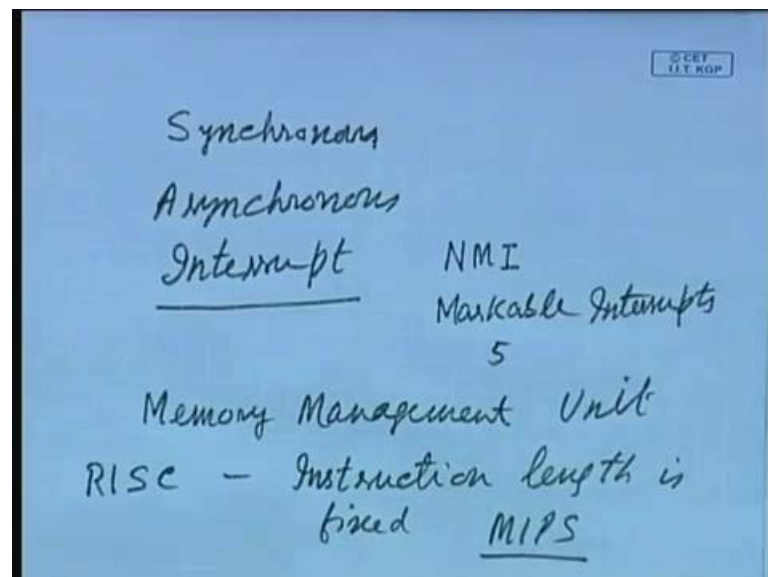 © CET
I.I.T. KGP
Synchronous
Asynchronous
Interrupt NMI
Maskable Interrupts
5
Memory Management Unit
RISC - Instruction length is
fixed MIPS